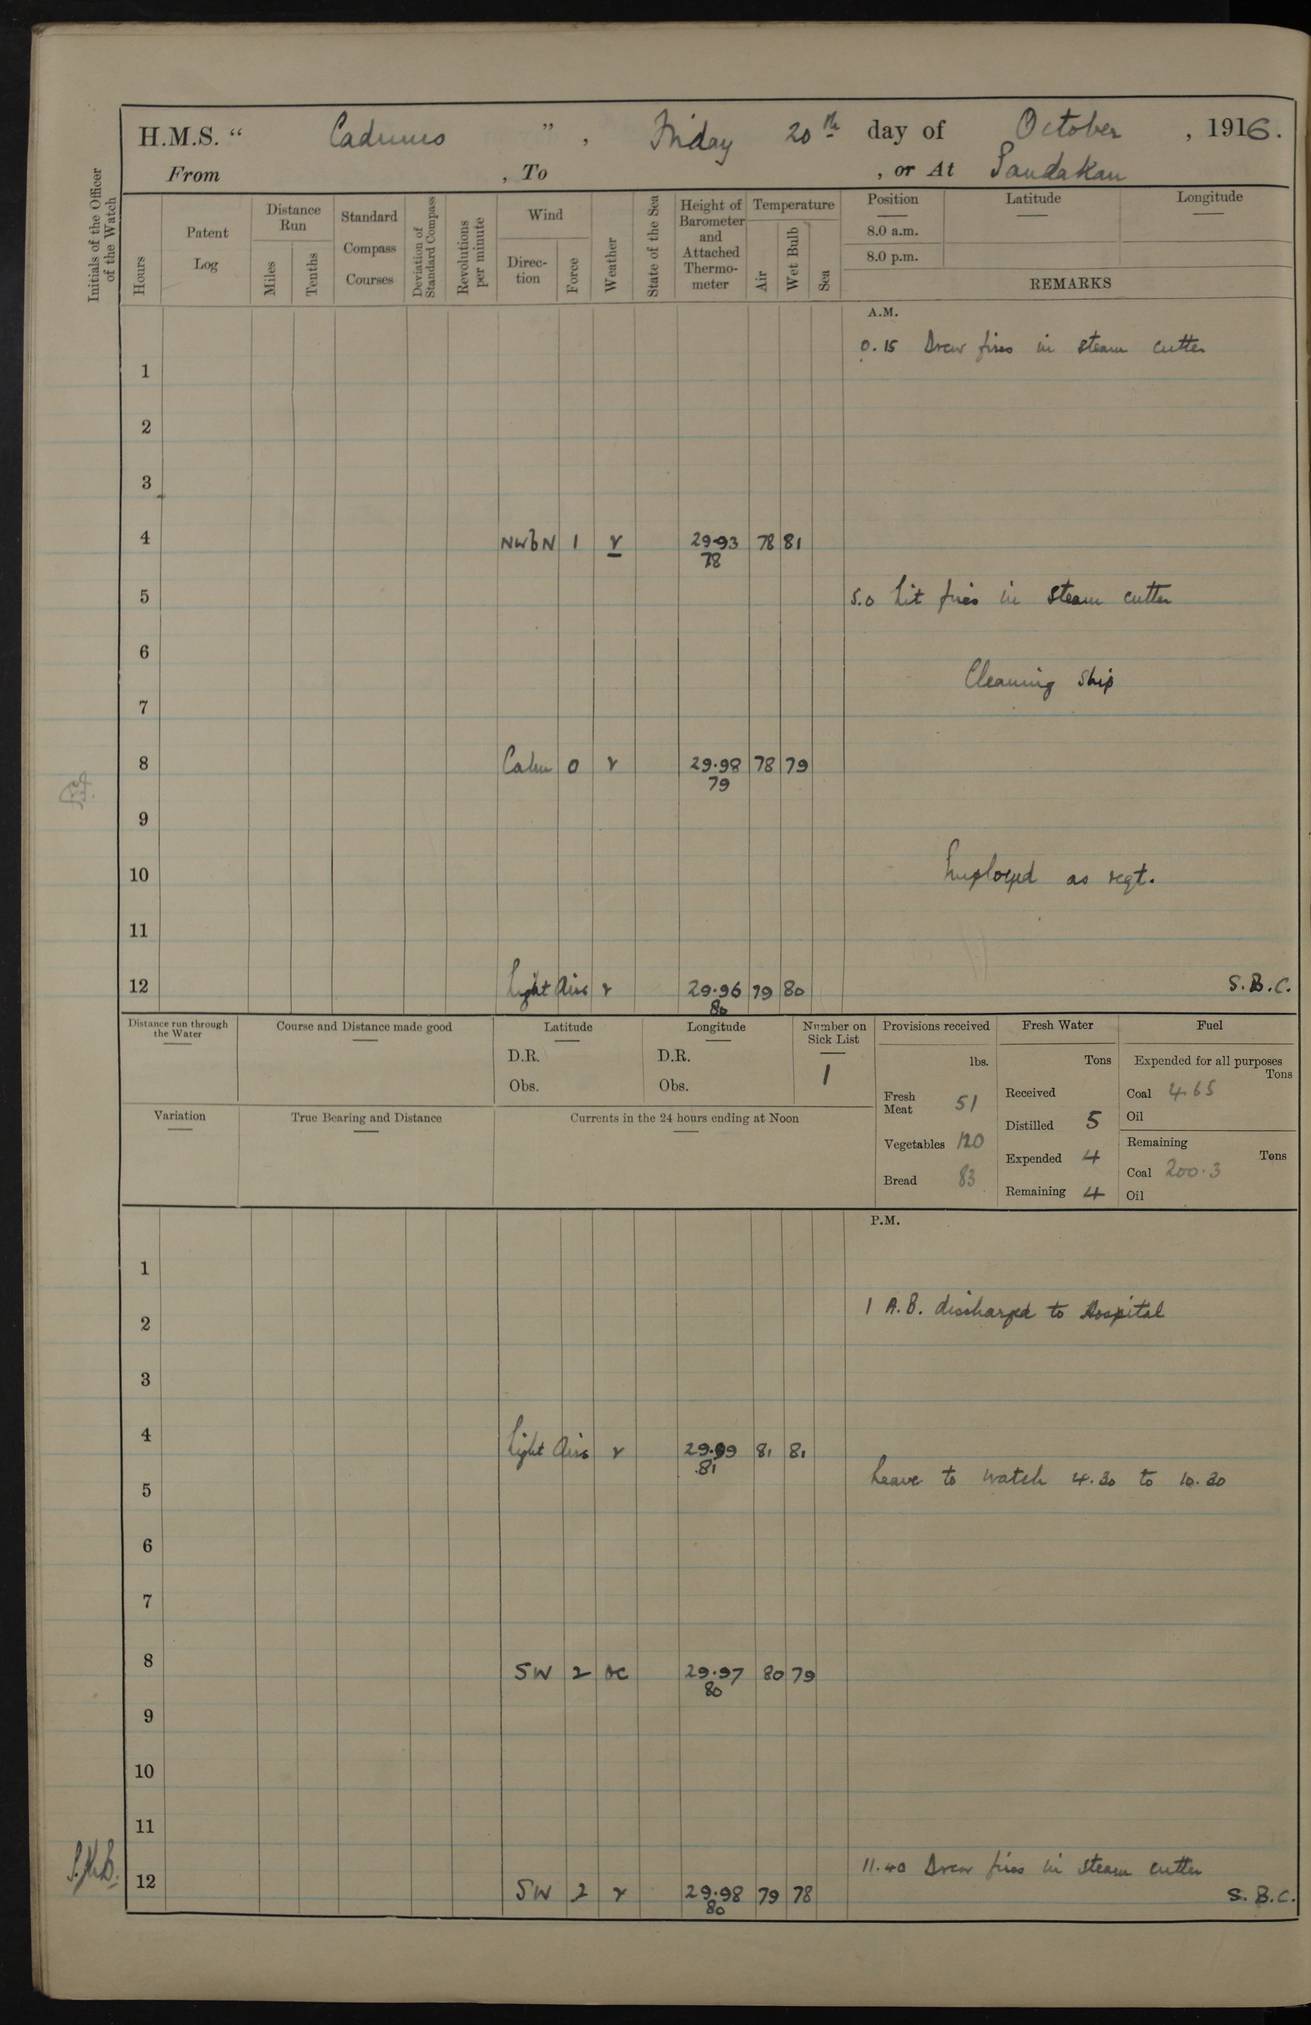 H.M.S. " Cadmus ", Friday 20th day of October, 1916.
From , To , or At Sandakan
Initials of the Officer of the Watch
Hours
Patent Log
Distance Run
Miles
Tenths
Standard Compass Courses
Deviation of Standard Compass
Revolutions per minute
Wind
Direction
Force
Weather
State of the Sea
Height of Barometer and Attached Thermometer
Temperature
Air
Wet Bulb
Sea
Position Latitude Longitude
8.0 a.m.
8.0 p.m.
REMARKS
A.M.
0.15 Drew fires in steam cutter
1
2
3
4 NWbN 1 r 29.93 78 81
78
5 5.0 Lit fires in steam cutter
6
Cleaning ship
7
8 Calm 0 r 29.98 78 79
79
9
10 Employed as reqt.
11
12 Light Airs r 29.96 79 80 S.B.C.
80
Distance run through the Water
Course and Distance made good
Latitude
D.R.
Obs.
Longitude
D.R.
Obs.
Number on Sick List
1
Provisions received
lbs.
Fresh Meat 51
Vegetables 120
Bread 83
Fresh Water
Tons
Received
Distilled 5
Expended 4
Remaining 4
Fuel
Expended for all purposes
Tons
Coal 4.65
Oil
Remaining
Tons
Coal 200.3
Oil
Variation
True Bearing and Distance
Currents in the 24 hours ending at Noon
P.M.
1
1 A.B. discharged to Hospital
2
3
4 Light Airs r 81 81
81
Leave to watch 4.30 to 10.30
5
6
7
8 SW 2 29.97 80 79
80
9
10
11
11.40 Drew fires in steam cutter
12 SW 2 r 29.98 79 78 S.B.C.
80